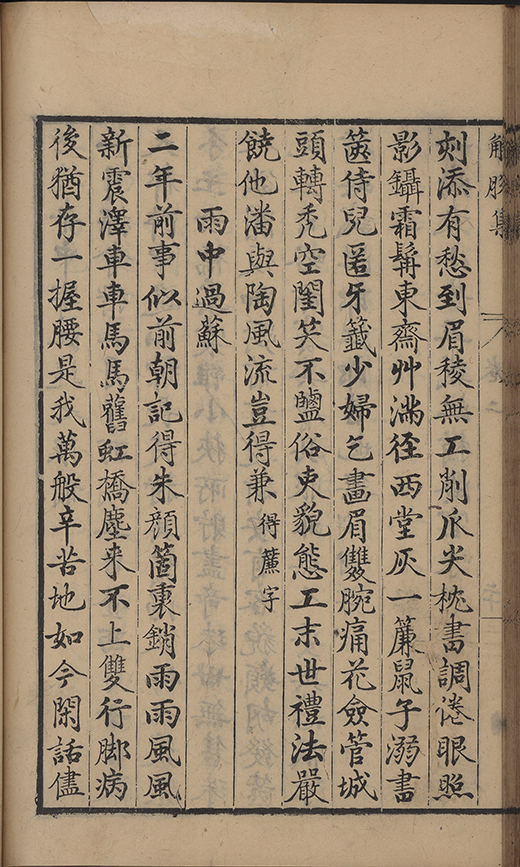 解脫集
刻添有愁到眉稜無工削爪尖枕書調倦眼照
影鑷霜髯東齋艸滿徑西堂灰一簾鼠子溺書
篋侍兒匿牙籤少婦乞畫眉雙腕痛花僉管城
頭轉禿空閨笑不鹽俗吏貌態工末世禮法嚴
饒他潘與陶風流豈得兼 得簾字
雨中過蘇
二年前事似前朝記得朱顏箇裏銷雨雨風風
新震澤車車馬馬舊虹橋塵来不上雙行脚病
後猶存一握腰是我萬般辛苦地如今閑話儘